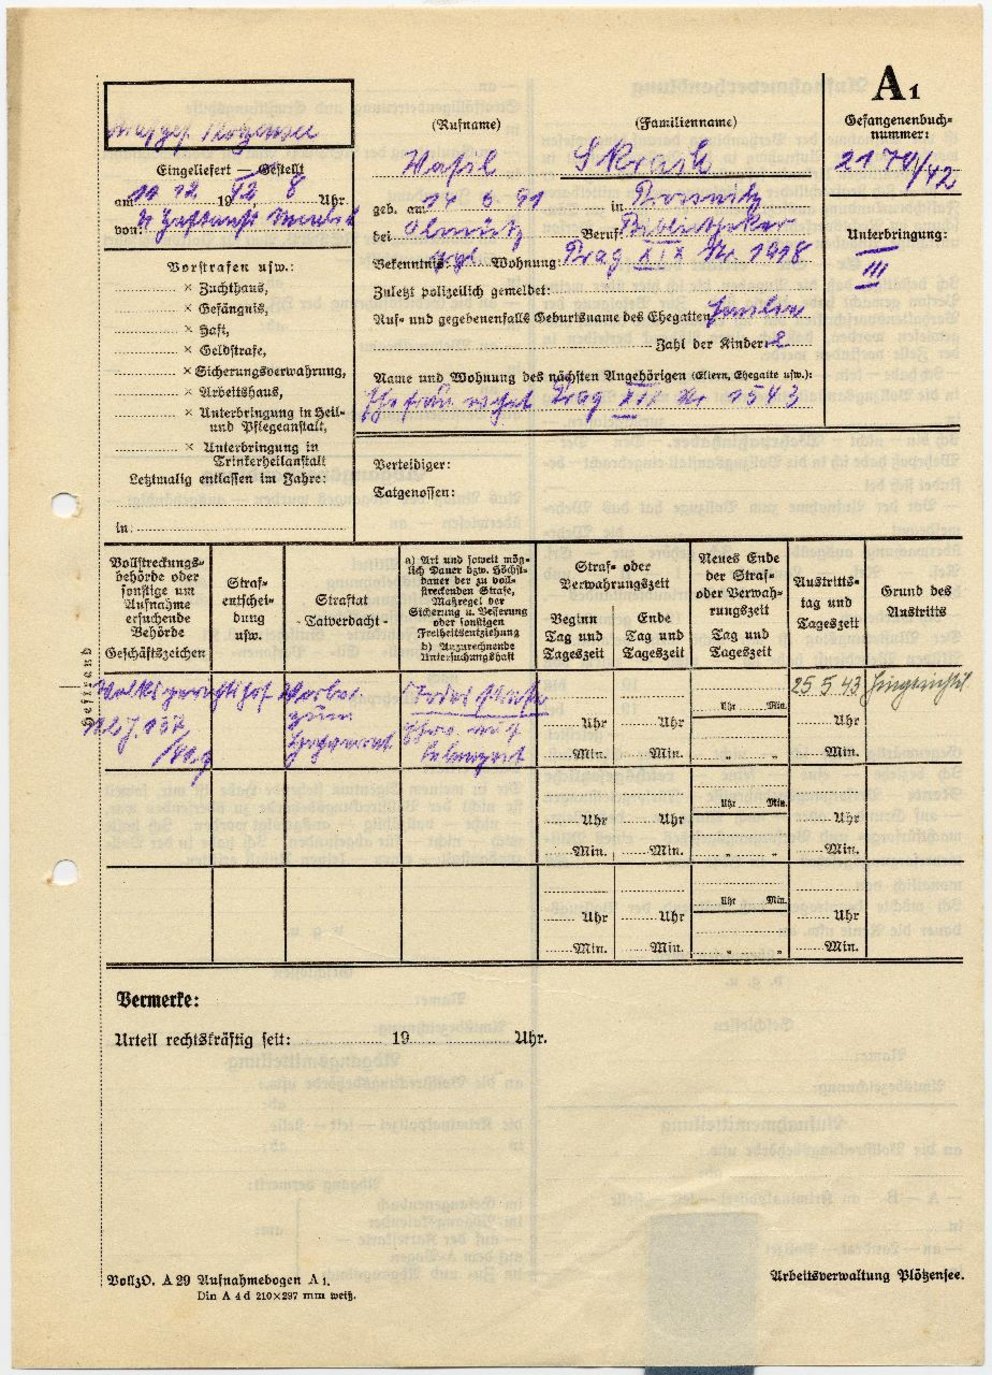 A 1
Gefangenenbuch-
nummer:
2170/42
Unterbringung:
III
Strafgef. Plötzensee
Eingeliefert — Gestellt
am 11 12 1942, 8 Uhr
von:
Vorstrafen usw.:
× Zuchthaus,
× Gefängnis,
× Haft,
× Geldstrafe,
× Sicherungsverwahrung,
× Arbeitshaus,
× Unterbringung in Heil-
und Pflegeanstalt,
× Unterbringung in
Trinkerheilanstalt
Letztmalig entlassen im Jahre:
in:
(Rufname) (Familienname)
Wasil Skrach
geb. am 14 6 91 in
bei Olmütz Beruf: Bibliothekar
Bekenntnis: Wohnung: Prag XIX Nr. 1918
Zuletzt polizeilich gemeldet:
Ruf- und gegebenenfalls Geburtsname des Ehegatten: Emilia
Zahl der Kinder: 2
Name und Wohnung des nächsten Angehörigen (Eltern, Ehegatte usw.):
Ehefrau wohnt Prag XIX Nr 1543
Verteidiger:
Tatgenossen:
Vollstreckungs-
behörde oder
sonstige um
Aufnahme
ersuchende
Behörde
Geschäftszeichen
Straf-
entschei-
dung
usw.
Straftat
- Tatverdacht -
a) Art und soweit mög-
lich Dauer bzw. Höchst-
dauer der zu voll-
streckenden Strafe,
Maßregel der
Sicherung u. Besserung
oder sonstigen
Freiheitsentziehung
b) Anzurechnende
Untersuchungshaft
Straf- oder
Verwahrungszeit
Beginn
Tag und
Tageszeit
Ende
Tag und
Tageszeit
Neues Ende
der Straf-
oder Verwah-
rungszeit
Tag und
Tageszeit
Austritts-
tag und
Tageszeit
Grund des
Austritts
Heftrand
Volksgerichtshof Vorber. Todesstrafe 25 5 43 Hingerichtet
zum
Hochverrat
Ehrv. auf
Lebenszeit
Uhr Uhr Uhr Min. Uhr
Min. Min. " " Min.
Uhr Uhr Uhr Min. Uhr
Min. Min. " " Min.
Uhr Uhr Uhr Min. Uhr
Min. Min. " " Min.
Vermerke:
Urteil rechtskräftig seit: 19 Uhr.
VollzO. A 29 Aufnahmebogen A 1.
Din A 4 d 210×297 mm weiß.
Arbeitsverwaltung Plötzensee.